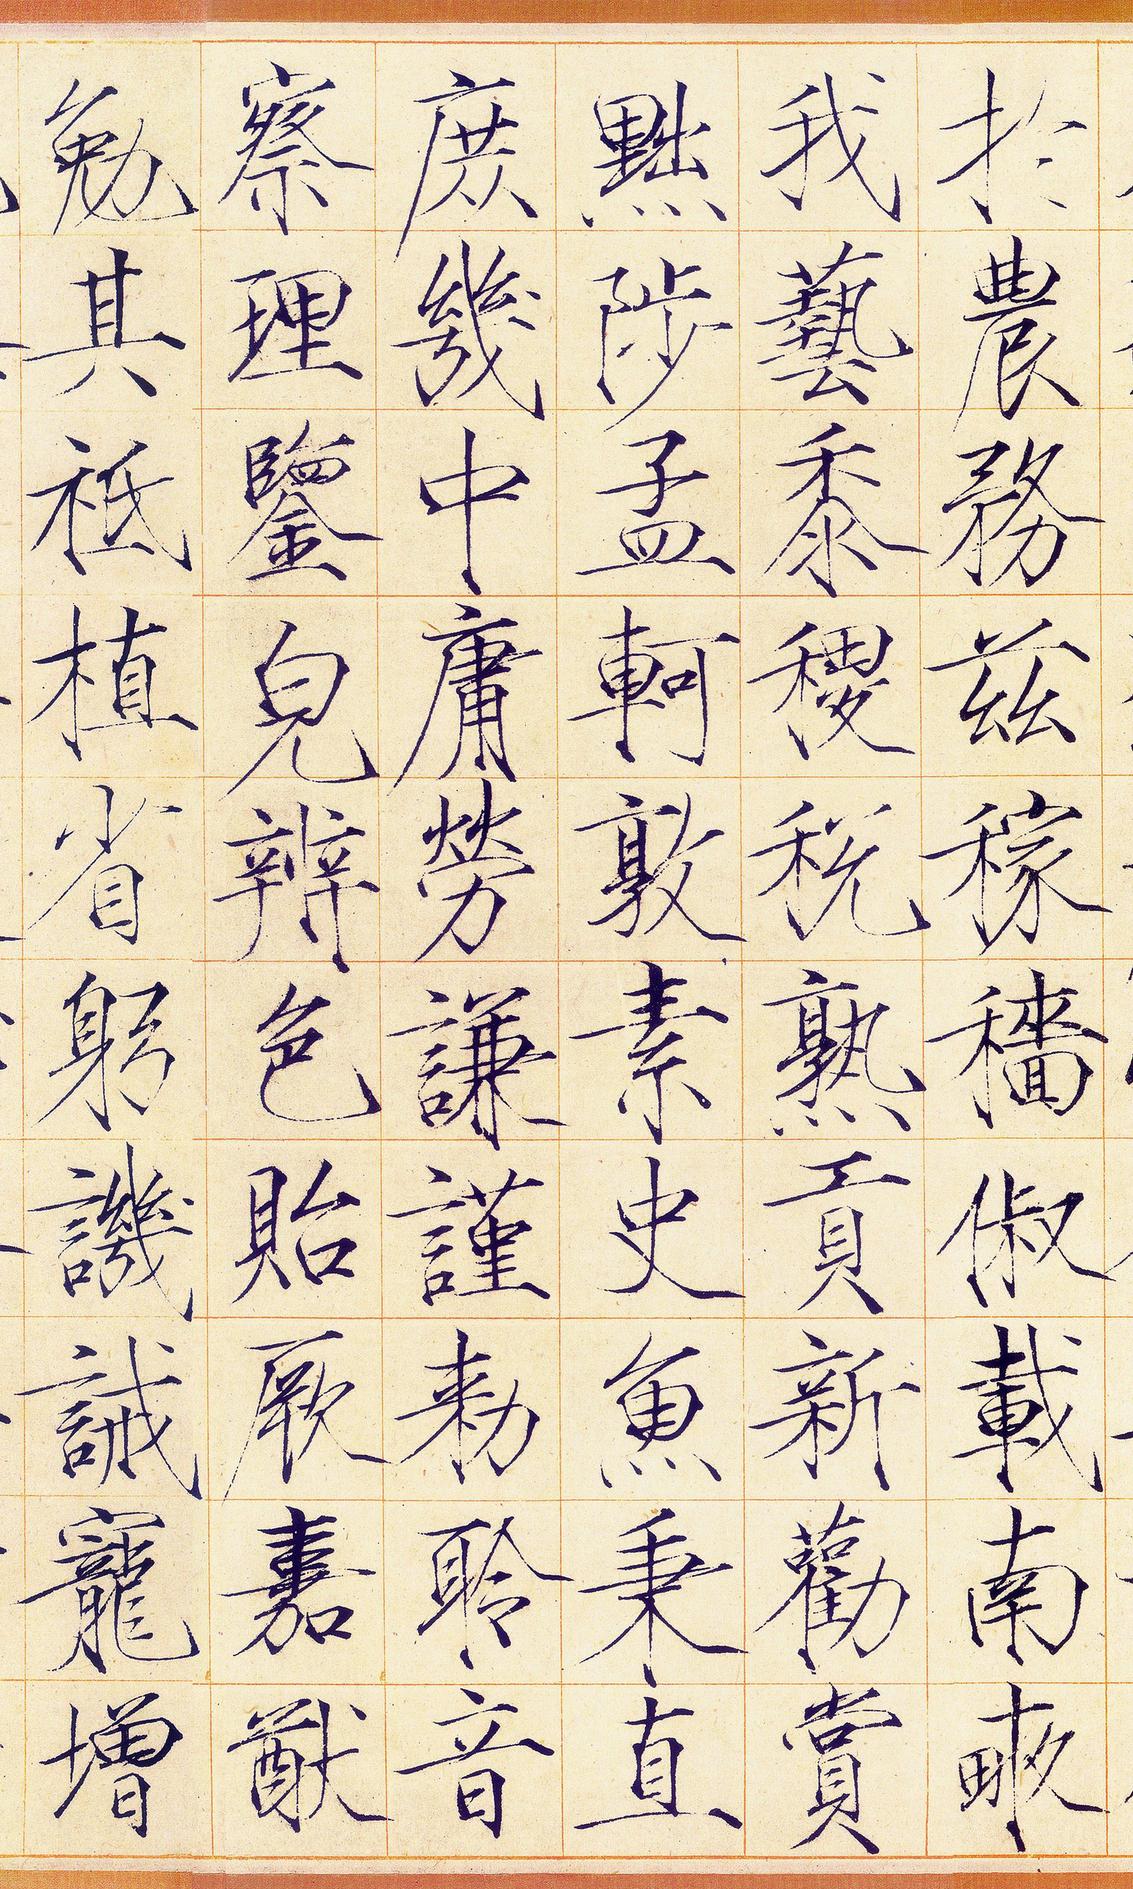 於農務茲稼穡俶載南畝
我藝黍稷稅熟貢新勸賞
黜陟孟軻敦素史魚秉直
庶幾中庸勞謙謹勑聆音
察理鑒皃辨色貽厥嘉猷
勉其祗植省躬譏誡寵增